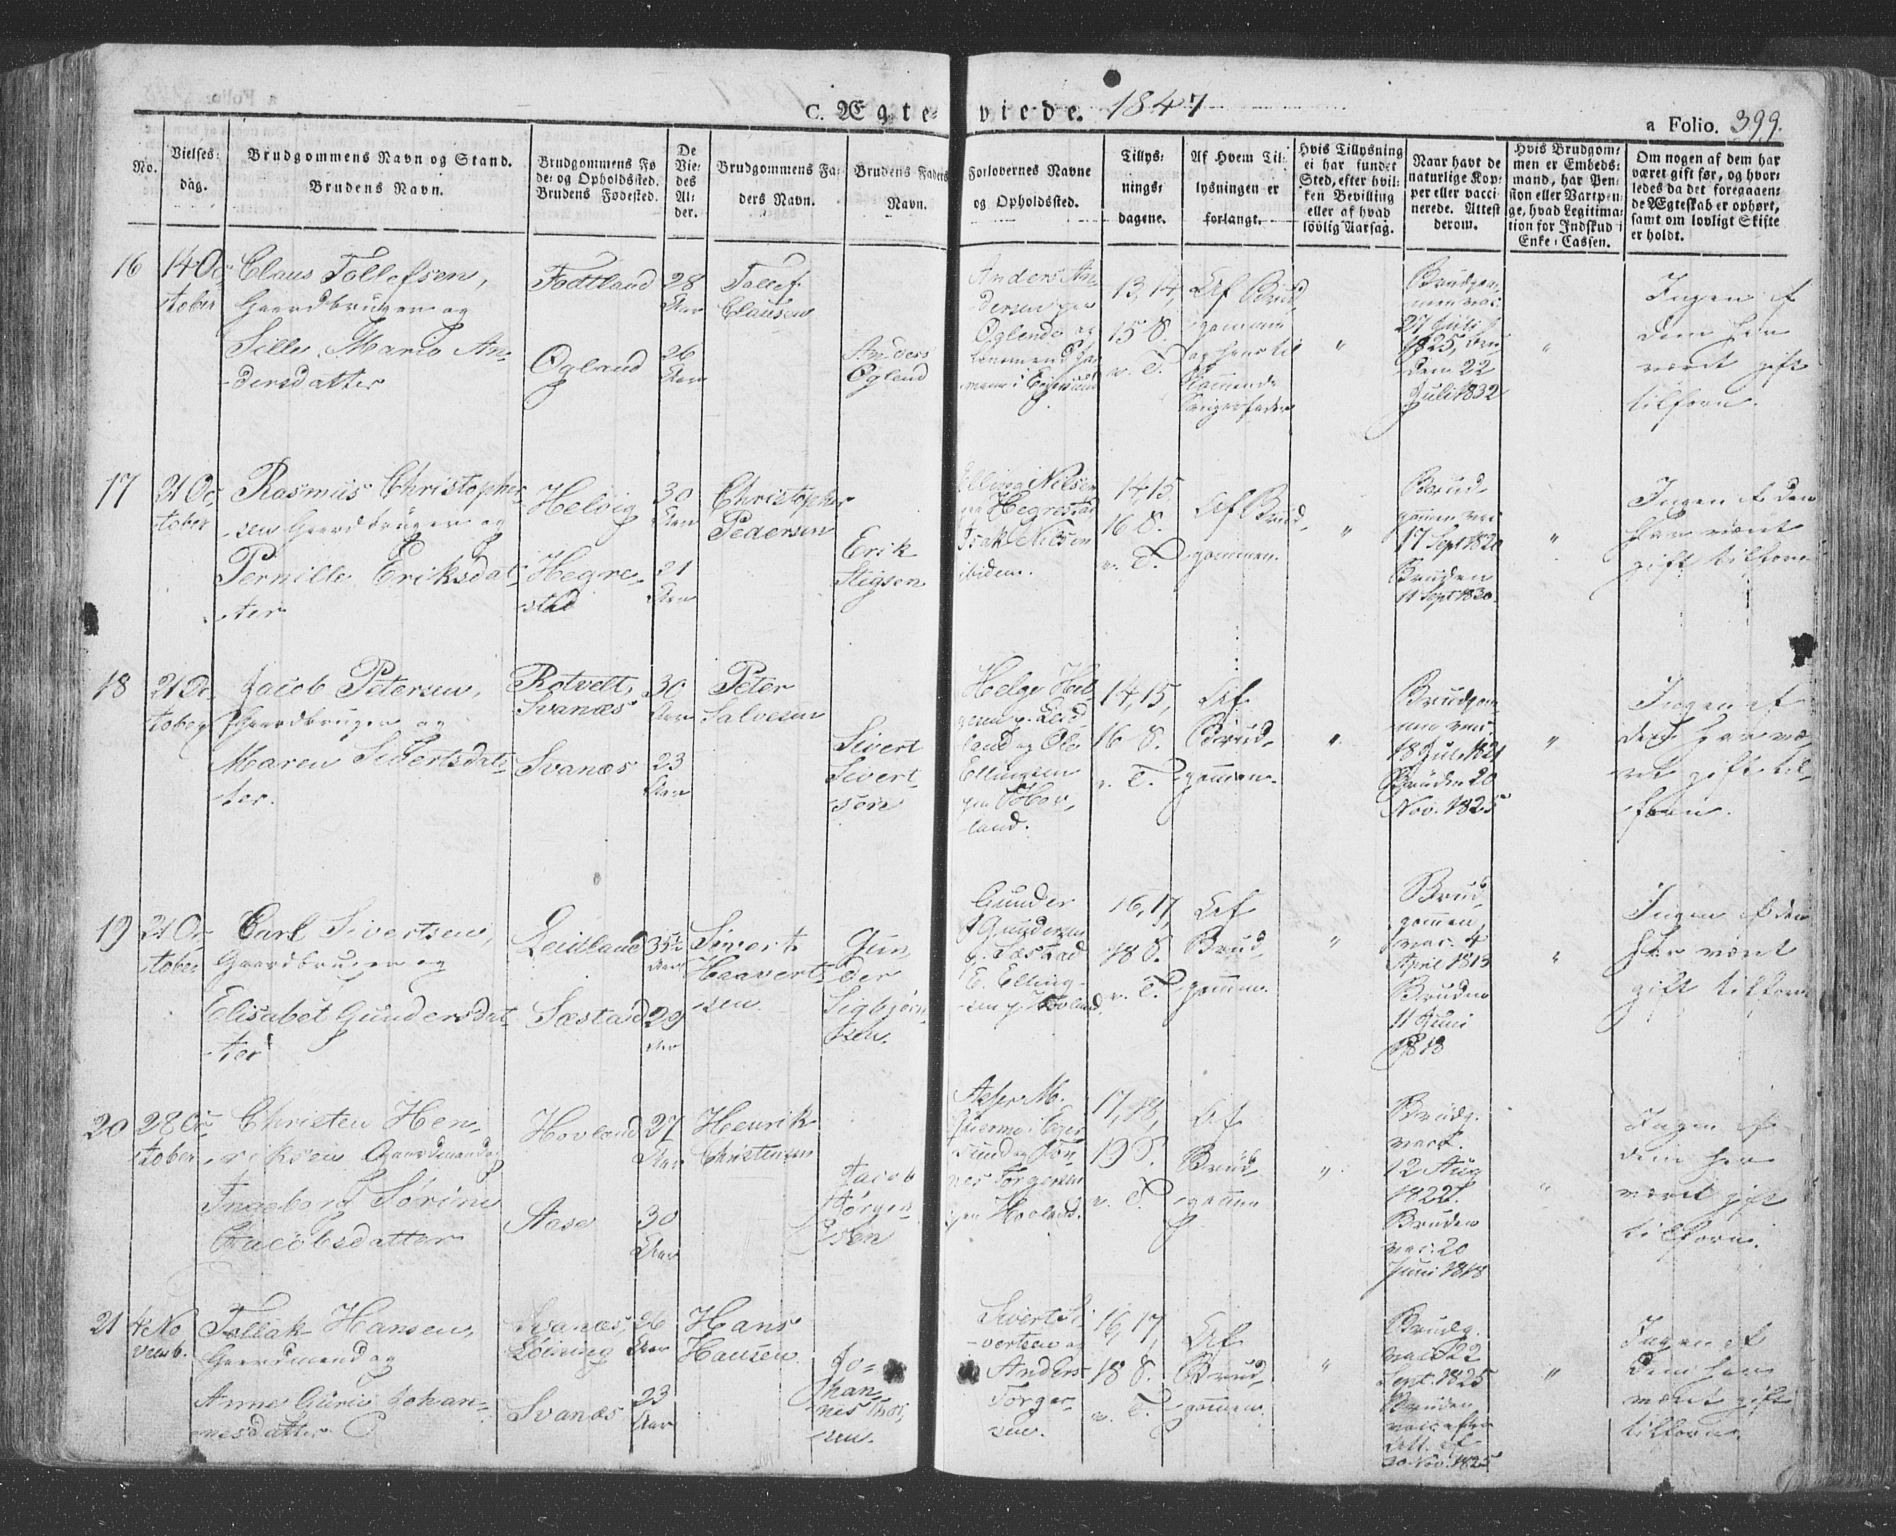 C. Ægte-viede. 1847
a Folio. 399.
No.
Vielses-
dag.
Brudgommens Navn og Stand.
Brudens Navn.
Brudgommens Fø-
de- og Opholdssted.
Brudens Fødested.
De
Vie-
des
Al-
der.
Brudgommens Fa-
ders Navn.
Brudens Faders
Navn.
Forlovernes Navne
og Opholdssted.
Tillys-
nings-
dagene.
Af Hvem Til-
lysningen er
forlangt.
Hvis Tillysning
ei har fundet
Sted, efter hvil-
ken Bevilling
eller af hvad
lovlig Aarsag.
Naar havt de
naturlige Kop-
per eller vacci-
nerede. Attest
derom.
Hvis Brudgom-
men er Embeds-
mand, har Pen-
sion eller Vartpen-
ge, hvad Legitima-
tion for Indskud i
Enke-Cassen.
Om nogen af dem har
været gift før, og hvor-
ledes da det foregaaen-
de Ægteskab er ophørt,
samt om lovligt Skifte
er holdt.
16
14 Oc-
tober
Claus Tollefsen,
Gaardbruger og
Sille Marie An-
dersdatter
Fodtland
Ogland
28
Aar
26
Aar
Tollef
Clausen
Anders
Oglend
Anders An-
dersen
Oglende og
13, 14,
15 S.
e. T.
Af Brud-
gommen
"
Brudgom-
men vac.
27 Juli
1825,
den 22
Juli 1832
"
Ingen af
dem har
været gift
tilforn.
17
21 Oc-
tober
Rasmus Christopher-
sen Gaardbruger og
Pernille Eriksdat-
ter
Helvig
Hegre-
stad
30
Aar
21
Aar
Christopher
Pedersen
Erik
Stigsen
Elling Nilsen
paa Hegrestad
Isak Nilsen
ibidem.
14, 15,
16 S.
e. T.
Af Brud-
gommen.
"
Brud-
gommen vac
17 Sept 1820
Bruden
11 Sept 1830.
"
Ingen af dem
har været
gift tilforn
18
21 Oc-
tober
Jacob Petersen,
Gaardbruger og
Maren Sivertsdat-
ter.
Rotvelt,
Svanæs
Svanæs
30
Aar
23
Aar
Peter
Salvesen
Sivert
Sivert-
sen
Helge Hel-
gesen p. Leid-
land og Ole
Ellingsen
paa Hov-
land.
14, 15,
16 S.
e. T.
Af
Brud-
gommen.
"
Brudgom-
men vac.
18 Juli 1821
Bruden 20
Nov. 1825
"
Ingen af
dem har væ-
ret gift til-
forn.
19
21 Oc-
tober
Carl Sivertsen,
Gaardbruger og
Elisabet Gundersdat-
ter
Leidland
Sæstad
35½
Aar
29
Aar
Sivert
Haavert-
sen
Gun-
der
Sigbjørn-
sen.
Gunder
Gundersen
p. Sæstad
E. Elling-
sen p. Hovland.
16, 17,
18 S.
e. T.
Af
Brud-
gommen.
"
Brud-
gommen
vac. 4
April 1813
Bruden
11 Juni
1818
"
Ingen af dem
har været
gift tilforn
20
28 Oc-
tober
Christen Hen-
riksen Gaardmand og
Ingeborg Sørine
Jacobsdatter
Hovland
Aase
27
Aar
30
Aar
Henrik
Christensen
Jacob
Jørgen-
sen
17, 18,
19 S.
e. T.
Af
Brud-
gommen
"
Brudg.
vac.
12 Aug
1822.
Bruden
vac. 20
Juni 1818
"
Ingen af
dem har
været gift
tilforn.
21
4 No-
vemb.
Tollak Hansen,
Gaardmand og
Anne Gurie Johan-
nesdatter
Svanæs,
Svanæs
26
Aar
23
Aar
Hans
Hansen
Jo-
han-
nes
Sivert Si-
vertsen og
Anders
Torger-
sen.
16, 17,
18 S.
e. T.
Af
Brud-
gommen.
"
Brudg.
vac. 22
Sept. 1825
Bruden
vac. efter
Att. af
20 Nov. 1825
"
Ingen af
dem har
været gift
tilforn.